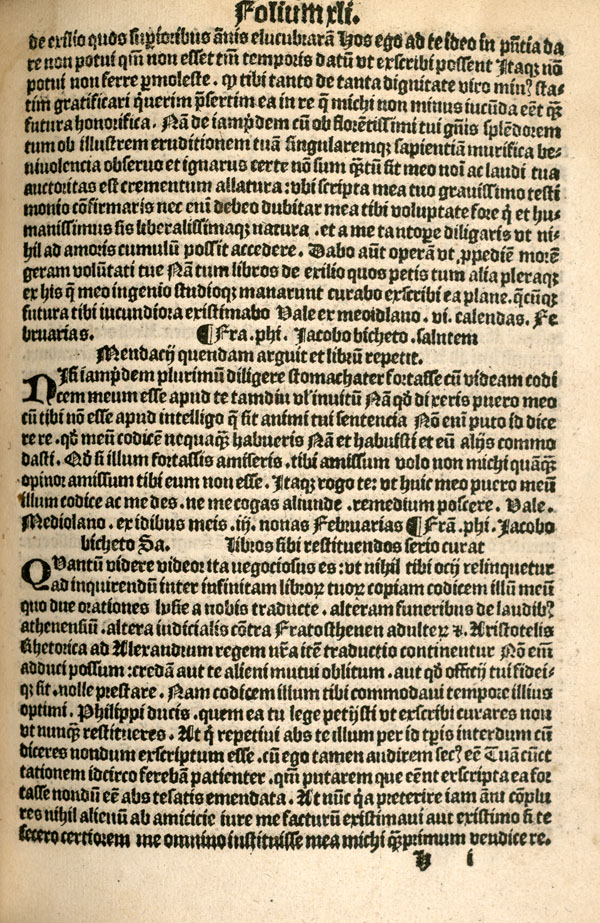 Folium xli.
de exilio quos supioribus ānis elucubrarā Hos ego ad te ideo in pn̄tia da
re non potui qm̄ non esset tm̄ temporis datū vt exscribi possent Itaqꝫ nō
potui non ferre ꝑmoleste . qꝫ tibi tanto de tanta dignitate viro minꝰ sta-
tim gratificari querim p̄sertim ea in re q̄ michi non minus iucūda eēt qꝫ̄
futura honorifica . Nā de iamp̄dem cū ob florētissimi tui gn̄is splēdorem
tum ob illustrem eruditionem tuā singularemqꝫ sapientiā murifica be-
niuolencia obseruo et ignarus certe nō sum qꝫ̄tū sit meo noi ac laudi tua
auctoritas est crementum allatura : vbi scripta mea tuo grauissimo testi
monio cōfirmaris nec eni debeo dubitar mea tibi voluptate fore q̄ et hu-
manissimus sis liberalissimaqꝫ natura . et a me tantoꝑe diligaris vt ni-
hil ad amoris cumulū possit accedere . Dabo aūt operā vt , ꝓpediē morē
geram volūtati tue Nā tum libros de exilio quos petis tum alia pleraqꝫ
ex his q̄ meo ingenio studioqꝫ manarunt curabo exscribi ea plane . q̄cūqꝫ
futura tibi iucundiora existimabo Vale ex meoidlano . vi . calendas . Fe
bruarias. ¶ Fra . phi . Iacobo bicheto . salutem
Mendacij quendam arguit et librū repetit.
DIsi iamp̄dem plurimū diligere stomachater fortasse cū videam codi
cem meum esse apud te tam diu vl' inuitū Nā qō di xeris puero meo
cū tibi nō esse apud intelligo q̄ sit animi tui sentencia Nō eni puto id dice
re re . qō meū codicē nequaqꝫ̄ habueris Nā et habuisti et eū alijs commo
dasti . Qō si illum fortassis amiseris . tibi amissum volo non michi quāqꝫ̄
opinor amissum tibi eum non esse . Itaqꝫ rogo te : vt huic meo puero meū
illum codice ac me des . ne me cogas aliunde . remedium poscere . Vale.
Mediolano . ex idibus meis . iij. nonas Februarias ¶ Frā . phi . Iacobo
bicheto Sa . Libros sibi restituendos serio curat
QVantū videre videor ita negociosus es : vt nihil tibi ocij relinquetur
ad inquirendū inter infinitam libroꝝ tuoꝝ copiam codicem illū meū
quo due orationes lysie a nobis traducte . alteram funeribus de laudibꝰ
atheneñsiū . altera iudicialis cōtra Fratosthenen adulteꝝ ⁊ . Aristotelis
Rhetorica ad Alexandrum regem nr̄a itē traductio continentur Nō eni
adduci possum : credā aut te alieni mutui oblitum . aut qō officij tui fidei-
qꝫ sit . nolle prestare . Nam codicem illum tibi commodaui tempore illius
optimi . Philippi ducis . quem ea tu lege petijsti vt exscribi curares non
vt nunqꝫ̄ restitueres . At q̄ repetiui abs te illum per id tp̄is interdum cū
diceres nondum exscriptum esse . cū ego tamen audirem secꝰ eē Tuā cūct
tationem idcirco ferebā patienter . qm̄ putarem que cēnt exscripta ea for
tasse nondū eē abs te satis emendata . At nūc q̄a preterire iam āni cōplu
res nihil alienū ab amicicie iure me facturū existimaui aut existimo si te
fecero certiorem me omnino instituisse mea michi qꝫ̄primum vendice re.
H i